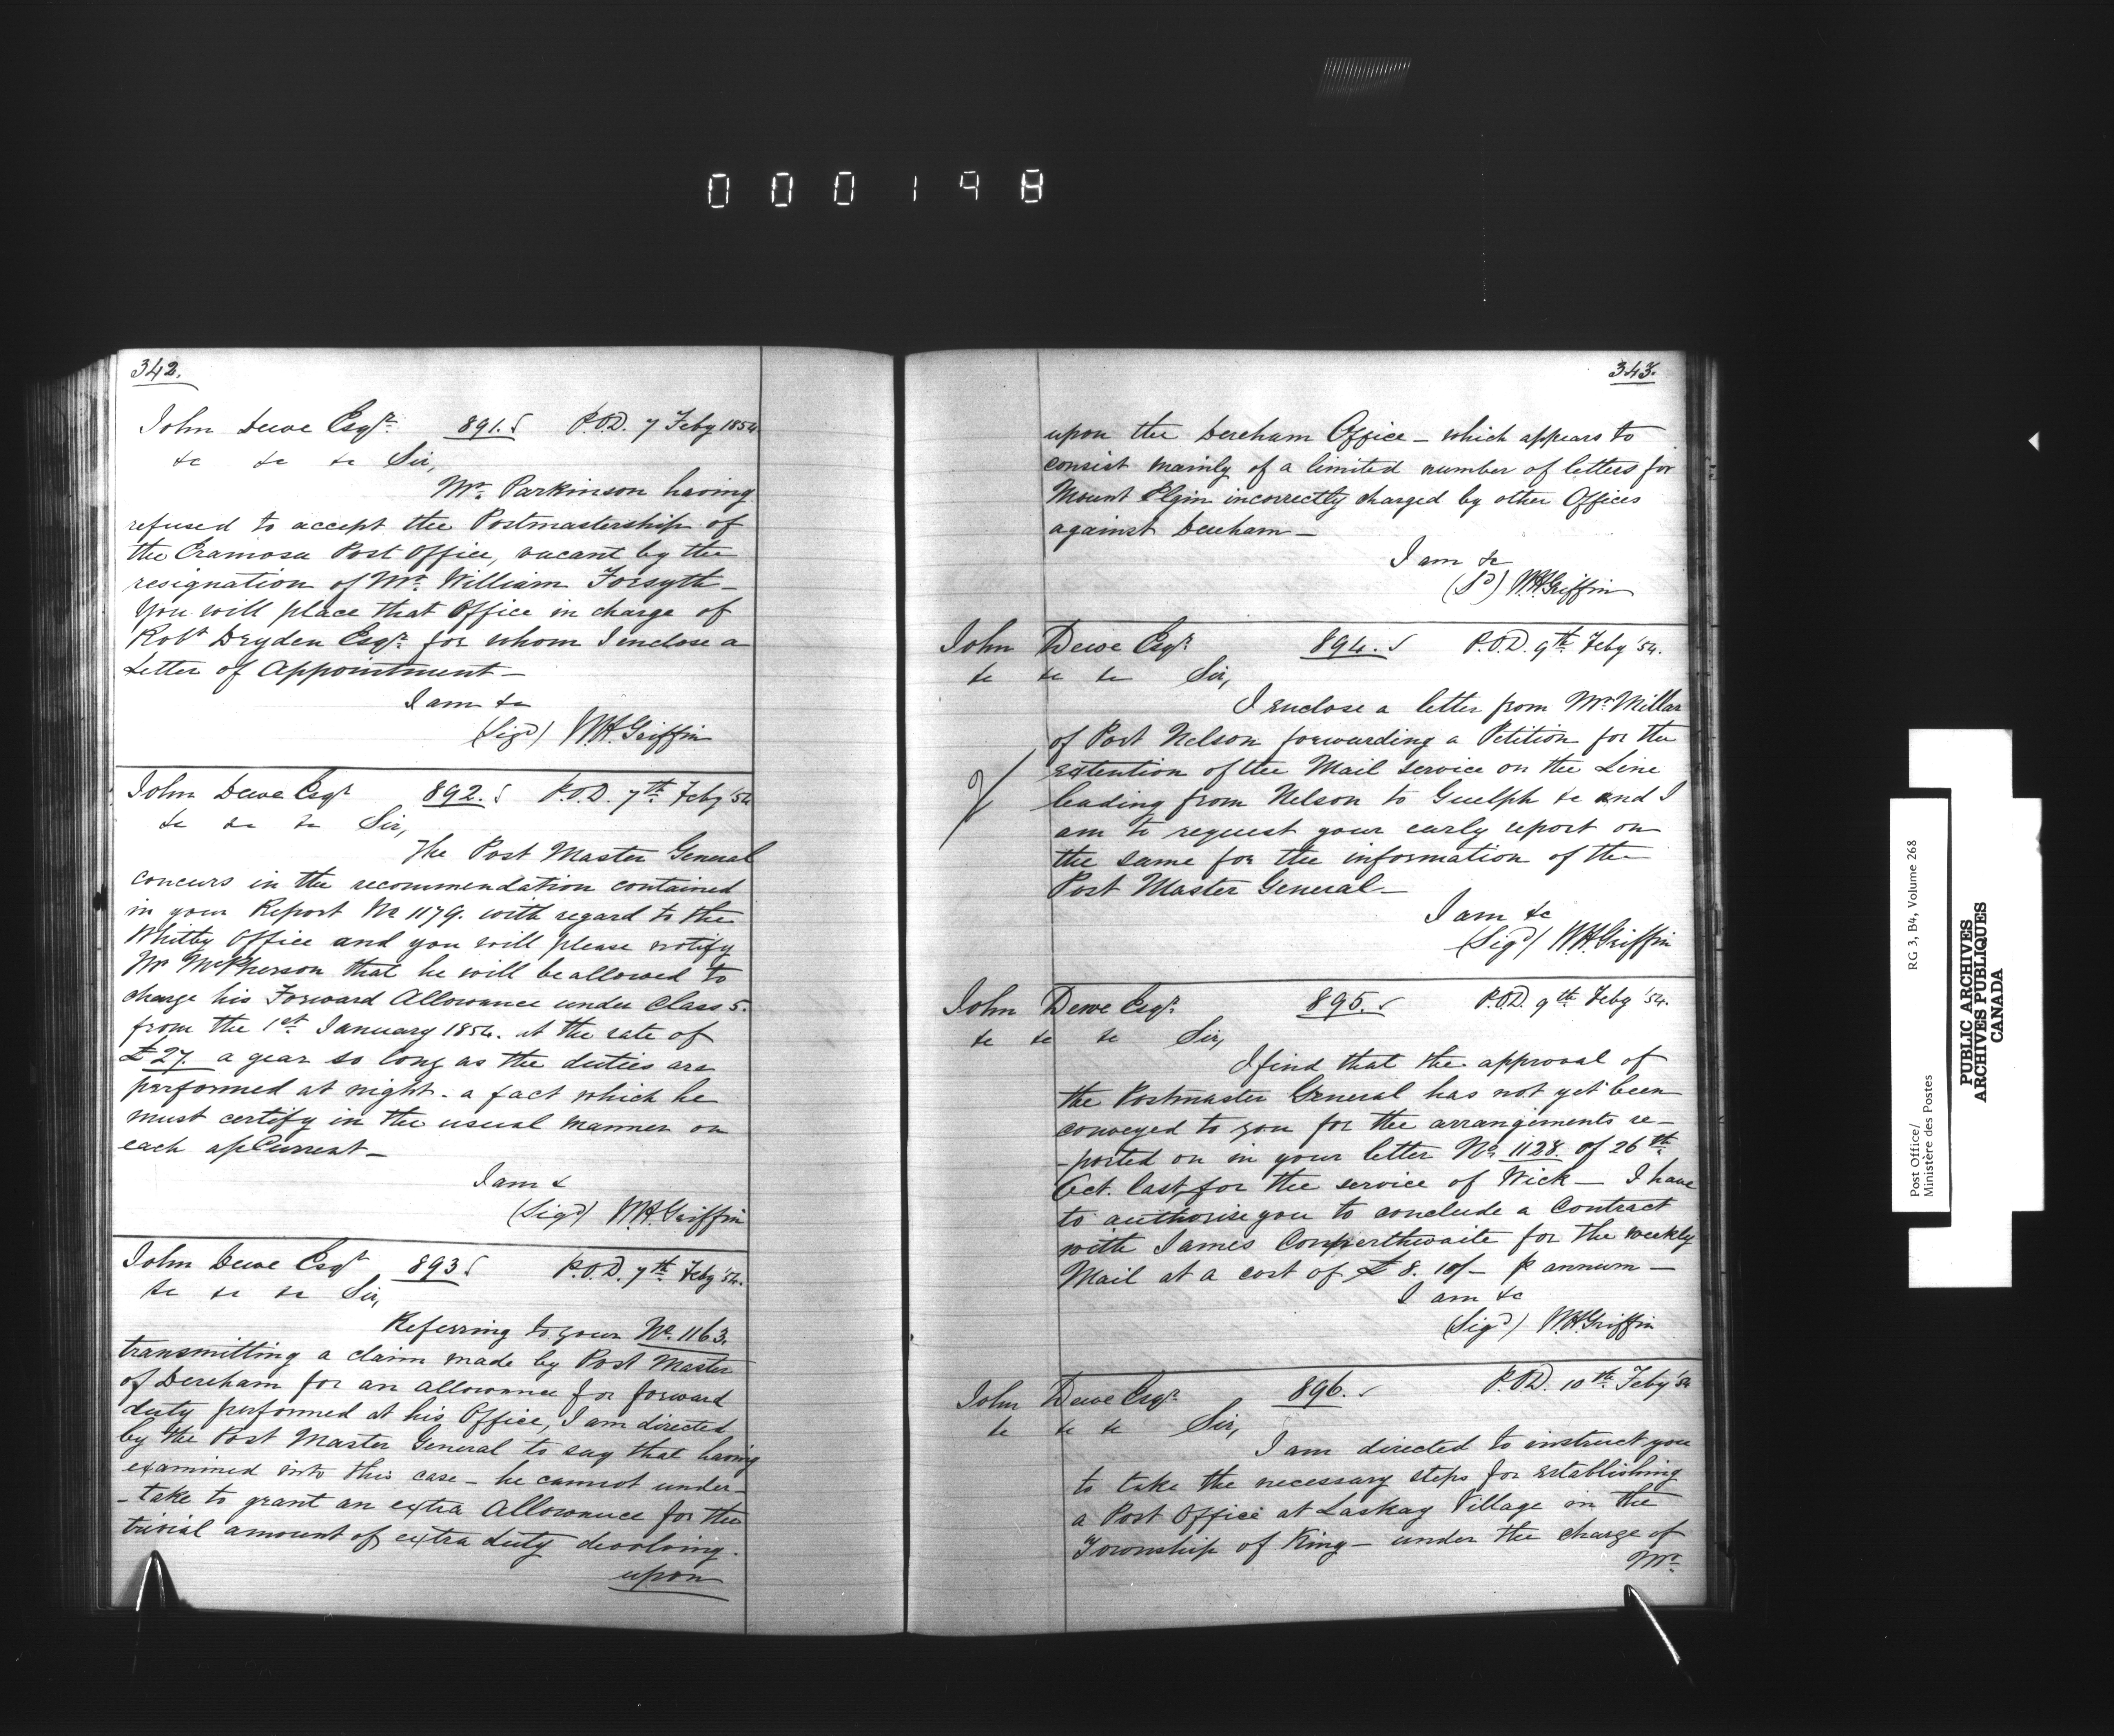 000198
342.
John Dewe Esqr. 891. P.O.D. 7 Feby 1854
&c &c &c Sir,
Mr. Parkinson having
refused to accept the Postmastership of
the Eramosa Post Office, vacant by the
resignation of Mr. William Forsyth —
You will place that Office in charge of
Robt Dryden Esqr. for whom I enclose a
Letter of Appointment —
I am &c
(Sigd) W.H. Griffin
John Dewe Esqr 892. P.O.D. 7th Feby '54
&c &c &c Sir,
The Post Master General
concurs in the recommendation contained
in your Report No 1179. with regard to the
Whitby Office and you will please notify
Mr McPherson that he will be allowed to
charge his Forward Allowance under Class 5.
from the 1st January 1854. at the rate of
£27. a year so long as the duties are
performed at night - a fact which he
must certify in the usual manner on
each a/Current —
I am &
(Sigd) W.H. Griffin
John Dewe Esqr 893 P.O.D. 7th Feby '54.
&c &c &c Sir,
Referring to your No. 1163.
transmitting a claim made by Post Master
of Dereham for an allowance for forward
duty performed at his Office, I am directed
by the Post Master General to say that having
examined into this case — he cannot under-
-take to grant an extra Allowance for the
trivial amount of extra duty devolving.
upon
343.
upon the Dereham Office — which appears to
consist mainly of a limited number of letters for
Mount Elgin incorrectly charged by other Offices
against Dereham —
I am &c
(Sd) W.H. Griffin
John Dewe Esqr 894. P.O.D. 9th Feby '54.
&c &c &c Sir,
I enclose a letter from Mr. Millar
of Port Nelson forwarding a Petition for the
extention of the Mail service on the Line
leading from Nelson to Guelph &c and I
am to request your early report on
the same for the information of the
Post Master General —
I am &c
(Sigd) W.H. Griffin
John Dewe Esqr. 895. P.O.D. 9th Feby '54.
&c &c &c Sir,
I find that the approval of
the Postmaster General has not yet been
conveyed to you for the arrangements re-
-ported on in your letter No. 1128. of 26th
Oct. last, for the service of Wick — I have
to authorise you to conclude a Contract
with James Conperthwaite for the weekly
Mail at a cost of £8. 10/- p annum —
I am &c
(Sigd) W.H. Griffin
John Dewe Esqr. 896. P.O.D. 10th Feby '54
&c &c &c Sir,
I am directed to instruct you
to take the necessary steps for establishing
a Post Office at Laskay Village in the
Township of King — under the charge of
Mr.
Post Office/
Ministère des Postes
RG 3, B4, Volume 268
PUBLIC ARCHIVES
ARCHIVES PUBLIQUES
CANADA